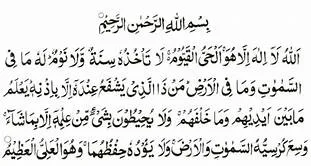 بِسْمِ اللّٰهِ الرَّحْمٰنِ الرَّحِيْمِ
اَللّٰهُ لَآ اِلٰهَ اِلَّا هُوَ ۚ اَلْحَيُّ الْقَيُّوْمُ ۚ لَا تَاْخُذُهٗ سِنَةٌ وَّلَا نَوْمٌ ؕ لَهٗ مَا فِى
السَّمٰوٰتِ وَمَا فِى الْاَرْضِ ؕ مَنْ ذَا الَّذِىْ يَشْفَعُ عِنْدَهٗٓ اِلَّا بِاِذْنِهٖ ؕ يَعْلَمُ
مَا بَيْنَ اَيْدِيْهِمْ وَمَا خَلْفَهُمْ ۚ وَلَا يُحِيْطُوْنَ بِشَىْءٍ مِّنْ عِلْمِهٖٓ اِلَّا بِمَا شَآءَ ۚ
وَسِعَ كُرْسِيُّهُ السَّمٰوٰتِ وَالْاَرْضَ ۚ وَلَا يَـُٔوْدُهٗ حِفْظُهُمَا ۚ وَهُوَ الْعَلِىُّ الْعَظِيْمُ